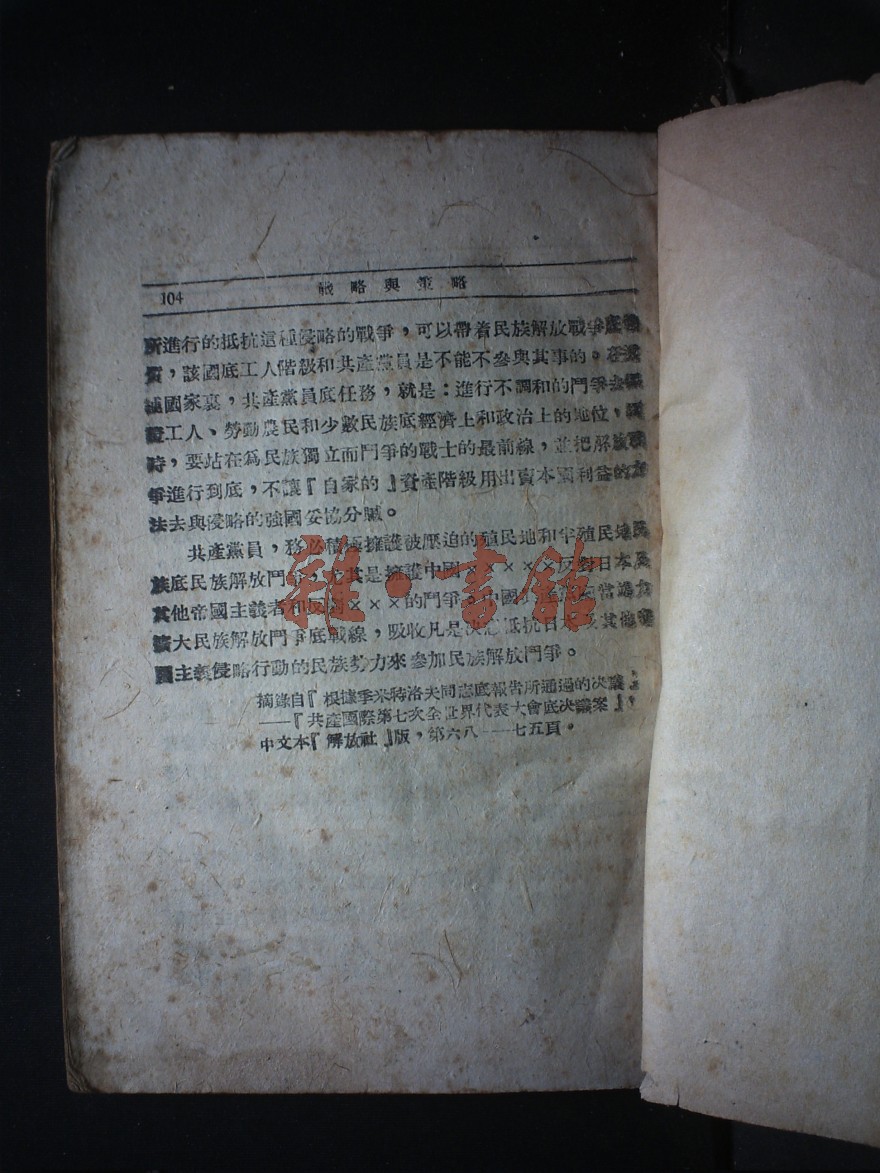 104 戰略與策略
所進行的抵抗這種侵略的戰爭，可以帶着民族解放戰爭底性
質，該國底工人階級和共產黨員是不能不參與其事的。在
國家裏，共產黨員底任務，就是：進行不調和的鬥爭去保
證工人、勞動農民和少數民族底經濟上和政治上的地位，同
時，要站在爲民族獨立而鬥爭的戰士的最前線，並把解放戰
爭進行到底，不讓『自家的』資產階級用出賣本國利益的方
法去與侵略的強國妥協分贓。
共產黨員，務必積極擁護被壓迫的殖民地和半殖民地民
族底民族解放鬥爭，尤其是擁護中國×××××反對日本及
其他帝國主義者和反對×××的鬥爭。中國
擴大民族解放鬥爭底戰線，吸收凡是決心抵抗日本及其他帝
國主義侵略行動的民族勢力來參加民族解放鬥爭。
摘錄自『根據季米特洛夫同志底報告所通過的決議』
——『共產國際第七次全世界代表大會底決議案』，
中文本『解放社』版，第六八——七五頁。
雜·書館